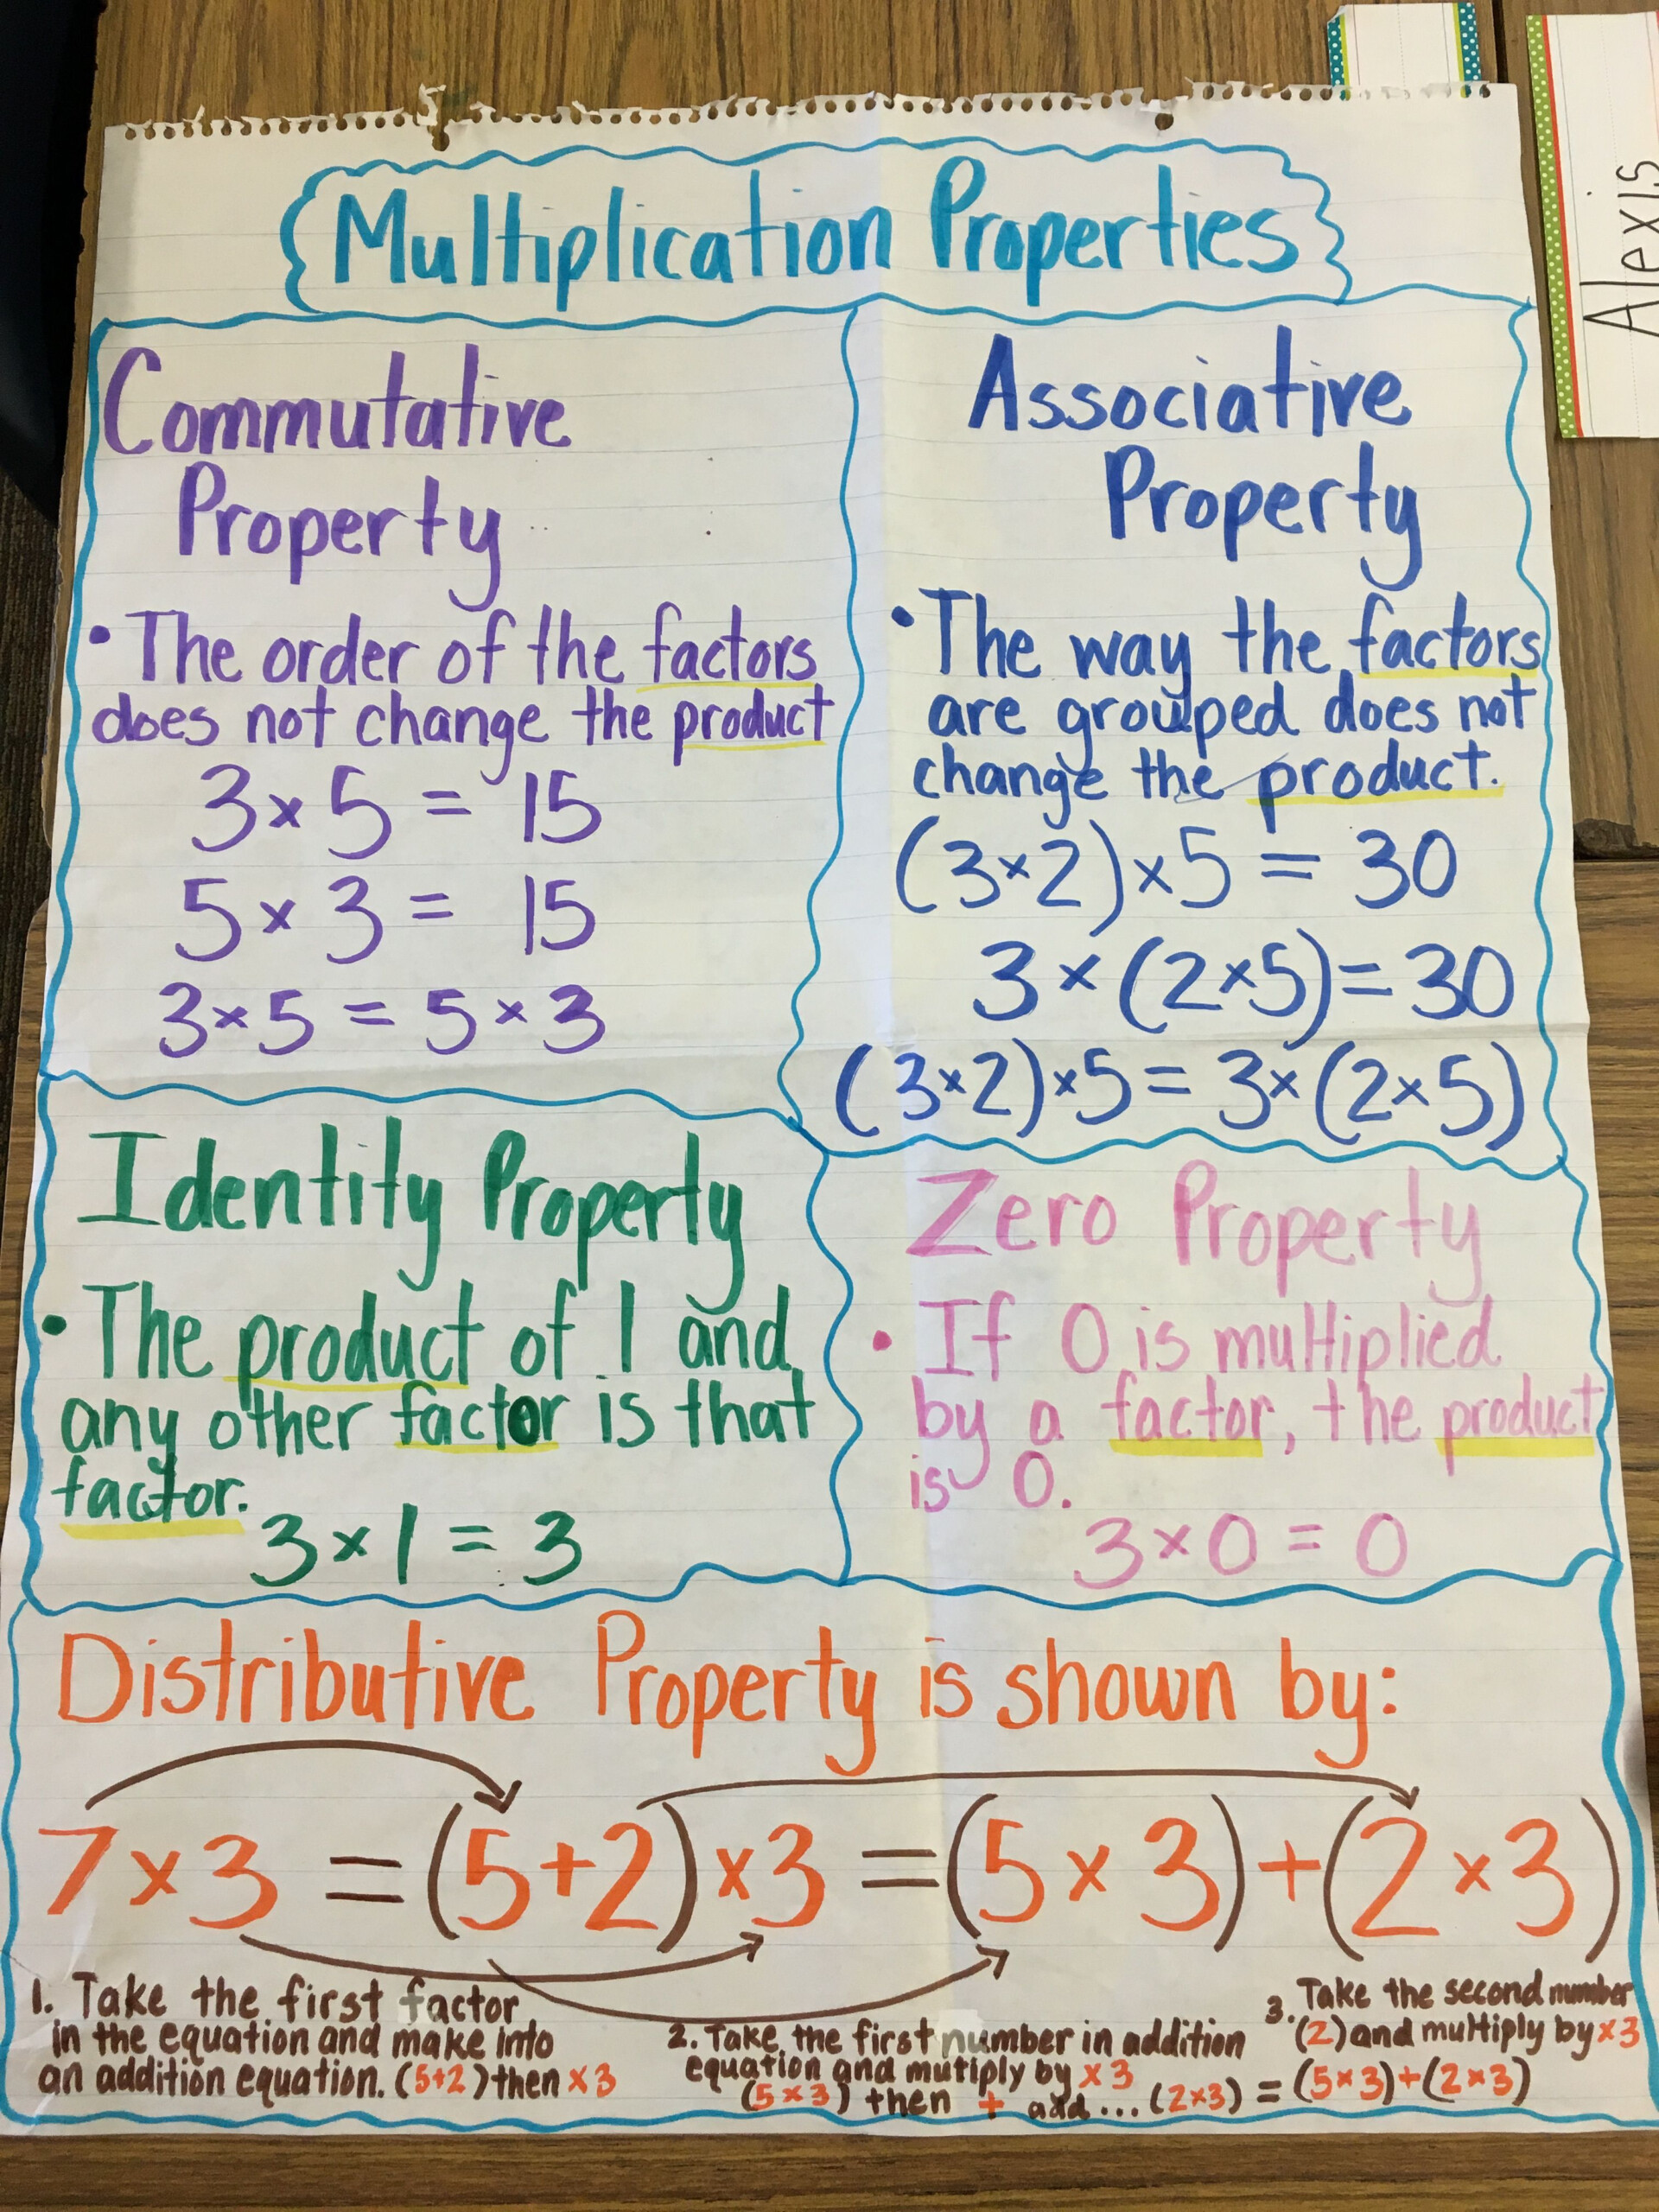 Multiplication Properties
Alexis
Commutative
Property
• The order of the factors
does not change the product
3 × 5 = 15
5 × 3 = 15
3 × 5 = 5 × 3
Associative
Property
• The way the factors
are grouped does not
change the product.
(3×2)×5 = 30
3 × (2×5) = 30
(3×2)×5 = 3×(2×5)
Identity Property
• The product of 1 and
any other factor is that
factor.
3 × 1 = 3
Zero Property
• If 0 is multiplied
by a factor, the product
is 0.
3 × 0 = 0
Distributive Property is shown by:
7 × 3 = (5+2) × 3 = (5 × 3) + (2 × 3)
1. Take the first factor
in the equation and make into
an addition equation. (5+2) then × 3
2. Take the first number in addition
equation and mutiply by × 3
(5 × 3) then + add... (2×3) = (5×3)+(2×3)
3. Take the second number
(2) and multiply by × 3